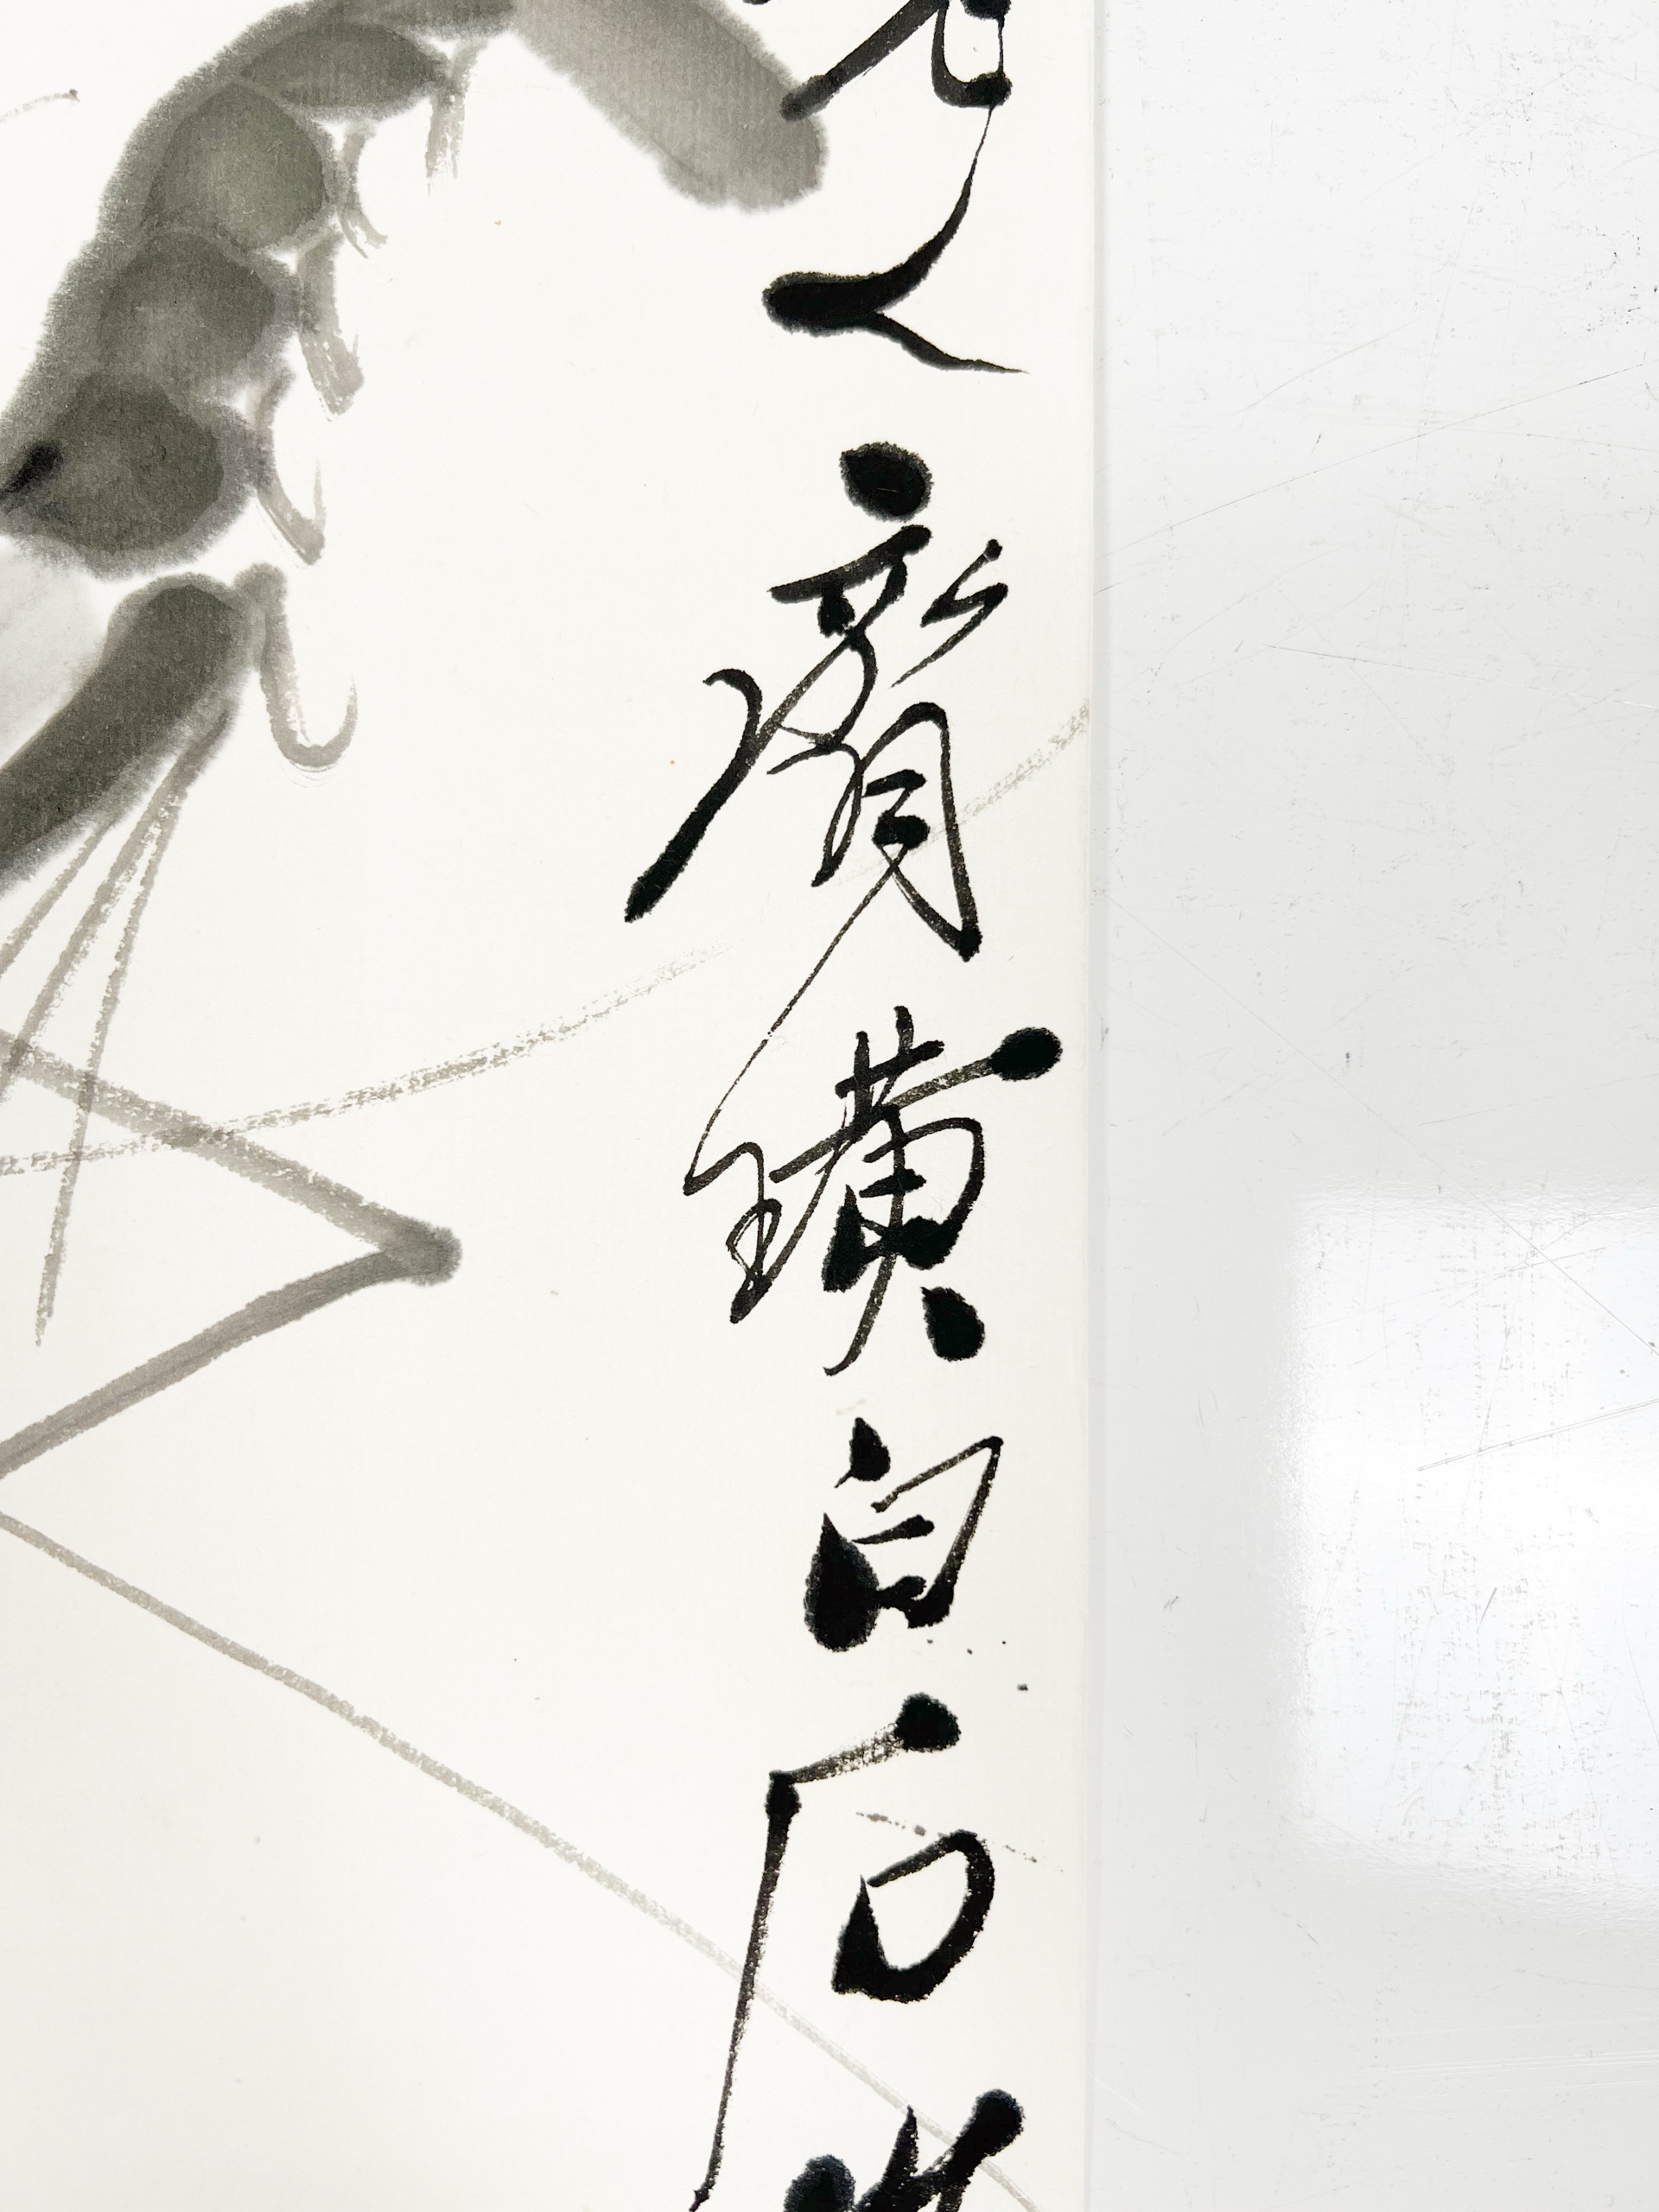 之齊璜白石